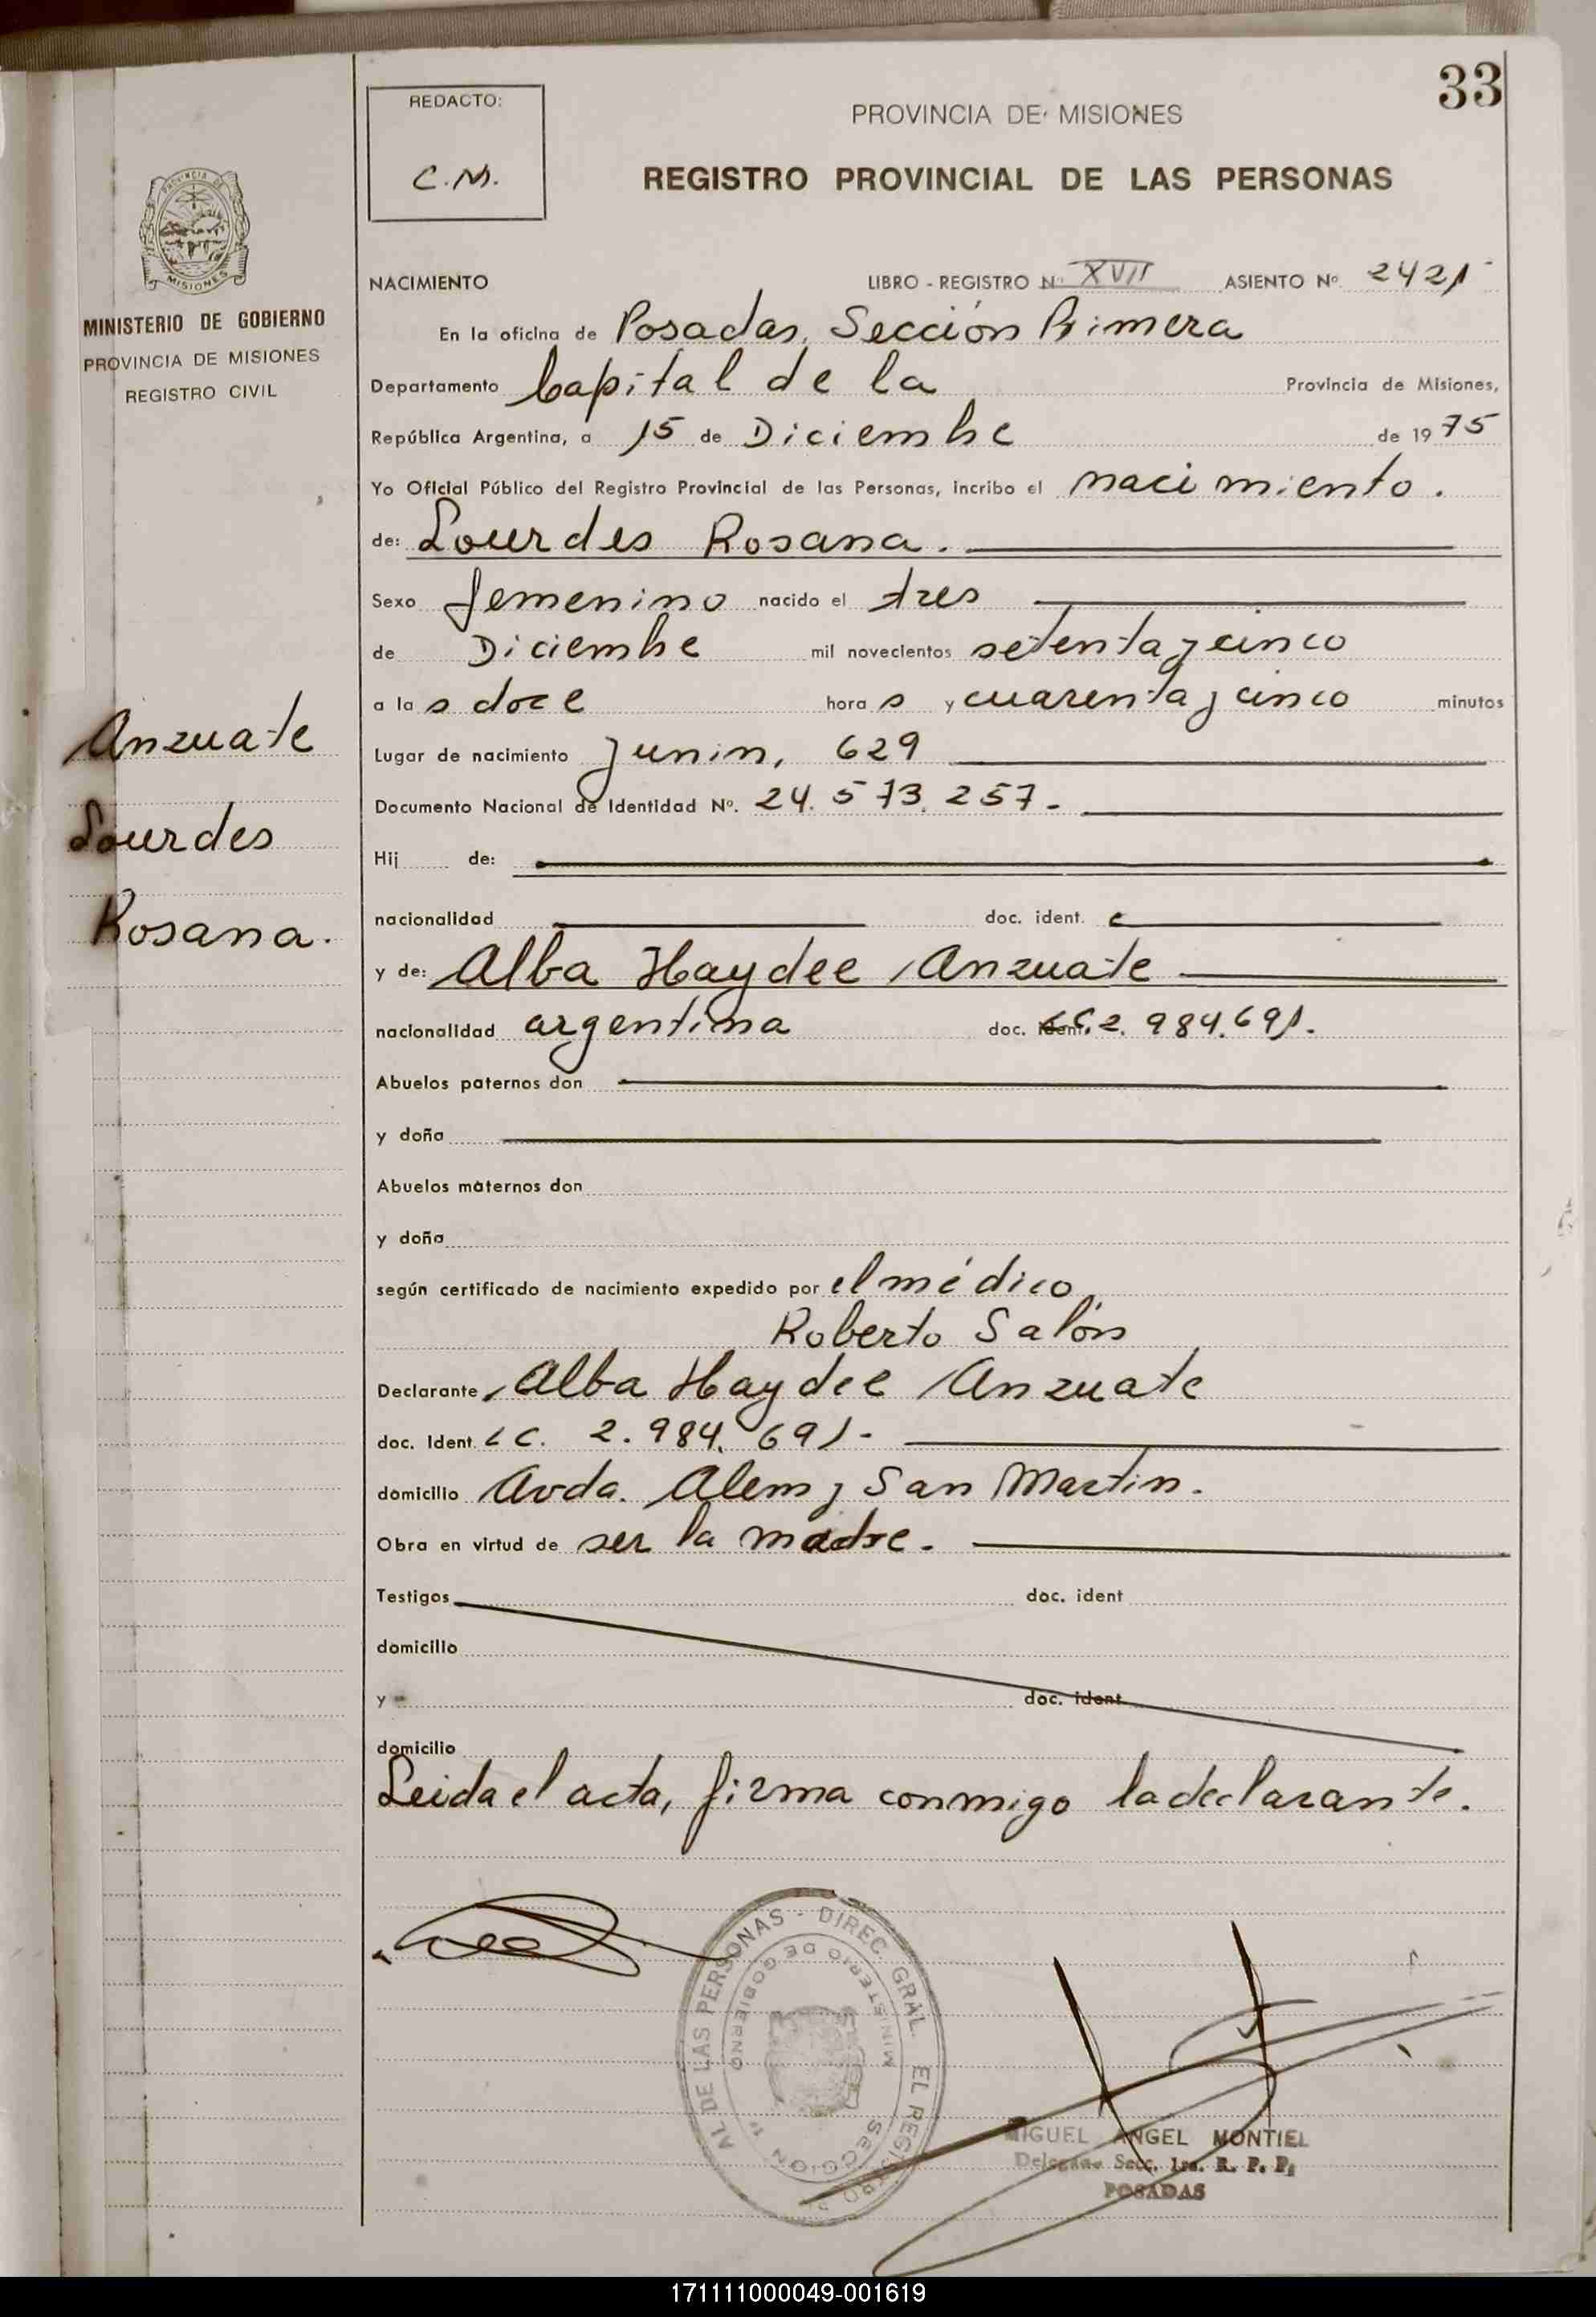 33
REDACTO:
C.M.
PROVINCIA DE MISIONES
REGISTRO PROVINCIAL DE LAS PERSONAS
MISIONES
MINISTERIO DE GOBIERNO
PROVINCIA DE MISIONES
REGISTRO CIVIL
NACIMIENTO LIBRO - REGISTRO Nº XVII ASIENTO Nº 2421
En la oficina de Posadas, Sección Primera
Departamento Capital de la Provincia de Misiones,
República Argentina, a 15 de Diciembre de 1975
Yo Oficial Público del Registro Provincial de las Personas, incribo el nacimiento.
de: Lourdes Rosana.
Sexo femenino nacido el tres
de Diciembre mil novecientos setenta y cinco
a las doce horas y cuarenta y cinco minutos
Anzuate
Lourdes
Rosana.
Lugar de nacimiento Junin, 629
Documento Nacional de Identidad Nº. 24.573.257-
Hij de:
nacionalidad doc. ident.
y de: Alba Haydee Anzuate
nacionalidad argentina doc. ident. LC 2.984.691.
Abuelos paternos don
y doña
Abuelos maternos don
y doña
según certificado de nacimiento expedido por el médico
Roberto Salóm
Declarante Alba Haydee Anzuate
doc. Ident. LC. 2.984.691-
domicilio Avda. Alem y San Martin.
Obra en virtud de ser la madre.
Testigos doc. ident
domicilio
y doc. ident
domicilio
Leida el acta, firma conmigo la declarante.
AL DE LAS PERSONAS - DIREC. GRAL. EL REGISTRO
MINISTERIO DE GOBIERNO
SECCION 1ª
MIGUEL ANGEL MONTIEL
Delegado Secc. 1ra. R. P. P.
POSADAS
171111000049-001619